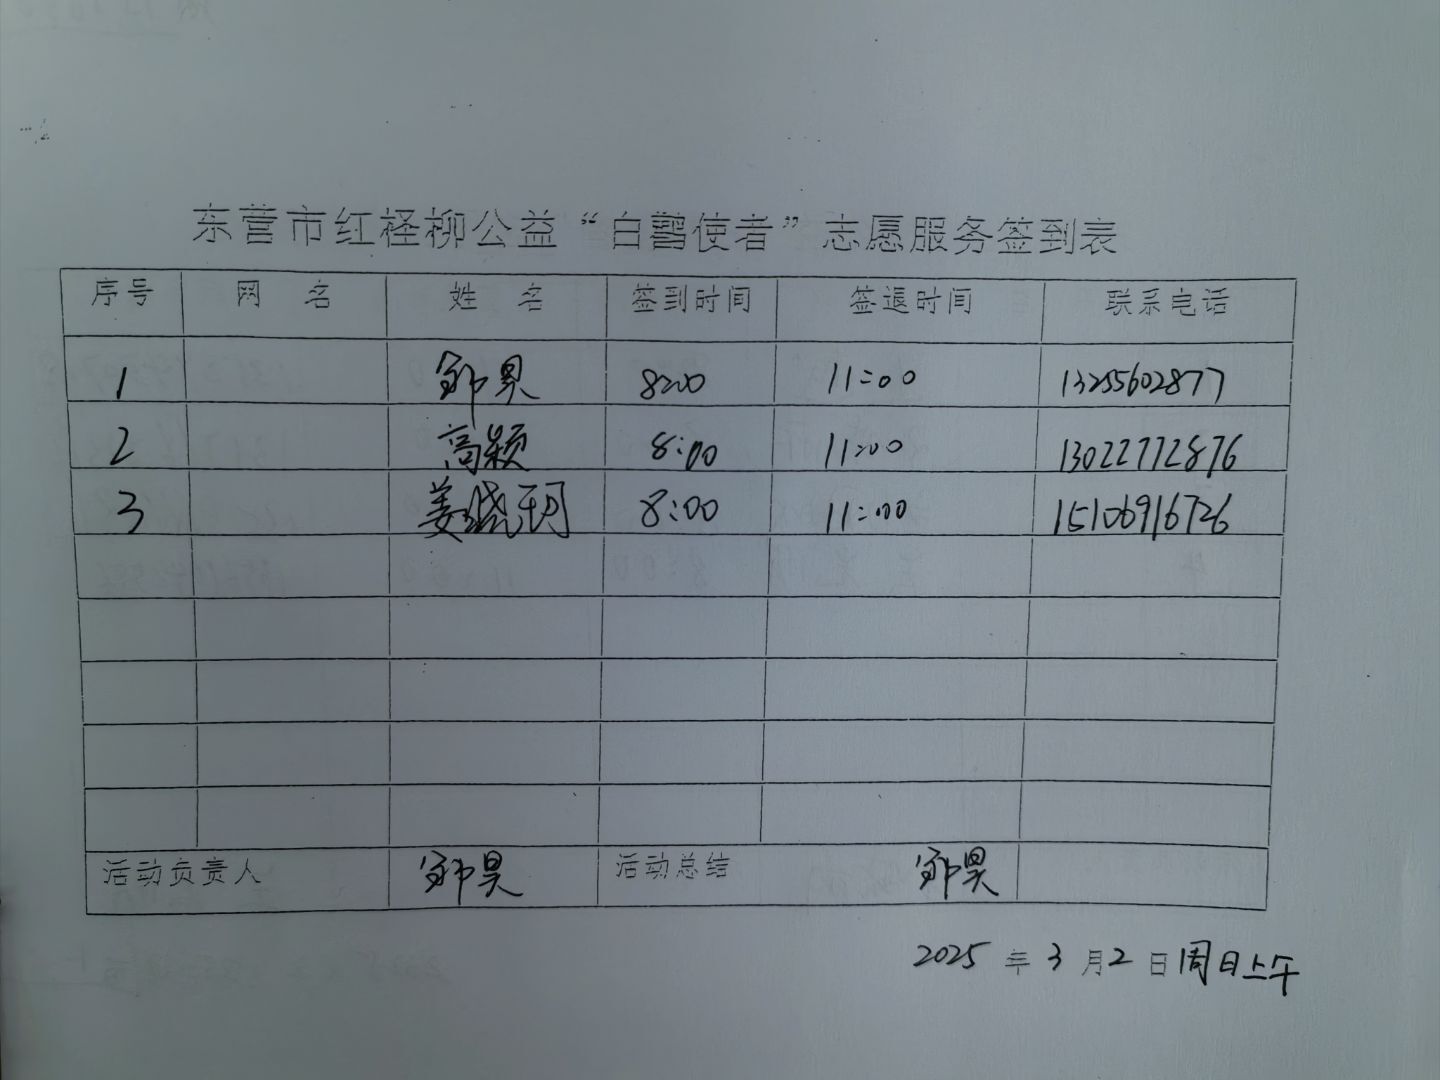 东营市红柽柳公益“白鹳使者”志愿服务签到表
序号 网 名 姓 名 签到时间 签退时间 联系电话
1 昊 8:00 11:00 13255602877
2 高颖 8:00 11:00 13022772876
3 姜晓玥 8:00 11:00 15106916726
活动负责人 昊 活动总结 昊
2025 年 3 月 2 日 周日上午